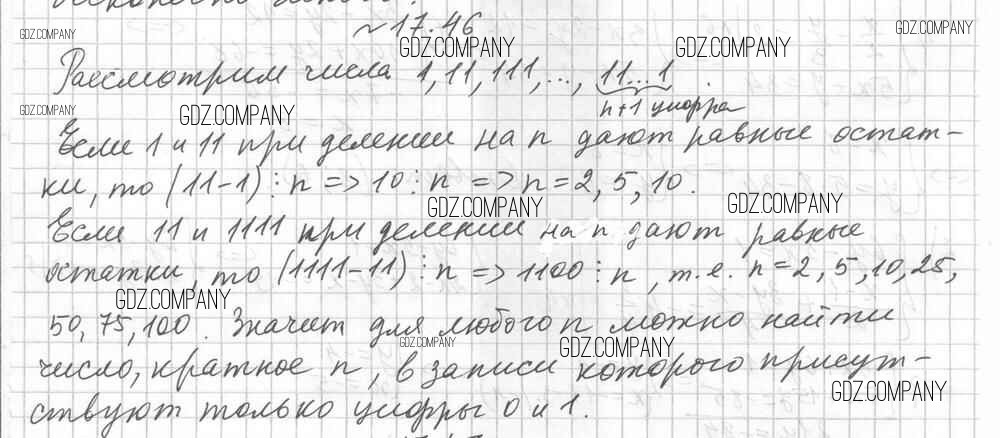 GDZ.COMPANY
~17.46
GDZ.COMPANY GDZ.COMPANY GDZ.COMPANY
Рассмотрим числа 1, 11, 111, ..., 11...1.
n+1 цифра
GDZ.COMPANY GDZ.COMPANY
Если 1 и 11 при делении на n дают равные остат-
ки, то (11-1)⋮n => 10⋮n => n=2, 5, 10.
GDZ.COMPANY GDZ.COMPANY
Если 11 и 1111 при делении на n дают равные
остатки, то (1111-11)⋮n => 1100⋮n, т.е. n=2, 5, 10, 25,
GDZ.COMPANY
50, 75, 100. Значит для любого n можно найти
GDZ.COMPANY GDZ.COMPANY
число, кратное n, в записи которого присут-
GDZ.COMPANY
ствуют только цифры 0 и 1.